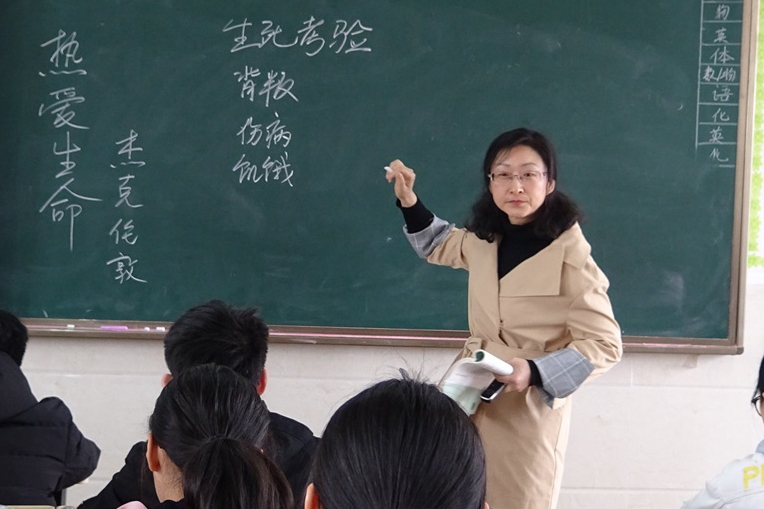 热爱生命
杰克伦敦
生死考验
背叛
伤病
饥饿
物
英
体
数/物
语
化
英
化
P